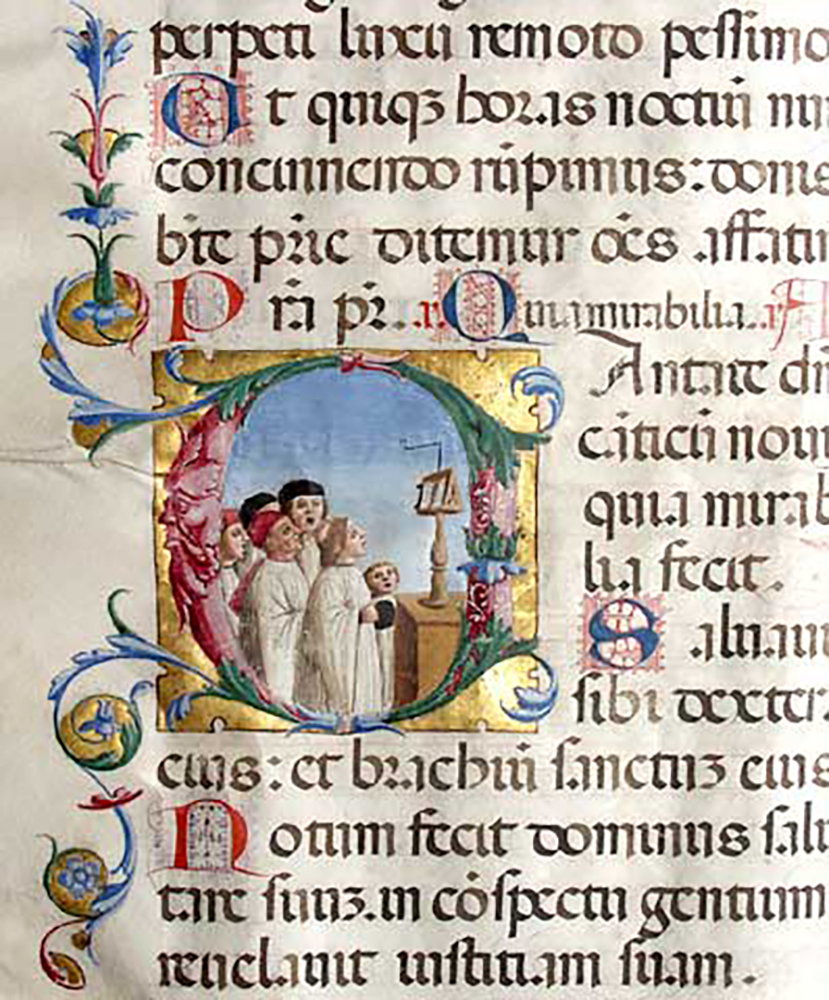 perpeti remoto pessimo
Ut quiqꝫ horas noctiū
concinnendo rūpimus: donis
btē pr̄ie ditemur oēs affati
Pri pr. a. Quia mirabilia.
CAntate dn̄
cāticū nou
quia mirab
lia fecit.
Saluaui
sibi dexter
eius: et brachiū sanctuꝫ eius
Notum fecit dominus salu
tare suuꝫ. in cōspectu gentium
reuelauit iustitiam suam.